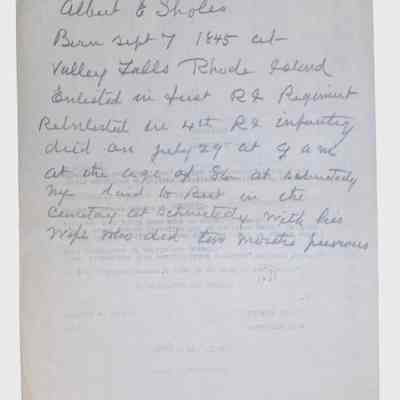 Albert E Sholes
Born Sept 7 1845 at
Valley Falls Rhode Island
Enlisted in first RI Regiment
Reinlisted in 4th RI infantry
died on july 29 at 9 am
at the age of at
NY laid to Rest in the
Cemetary at with his
Wife who did two months previous